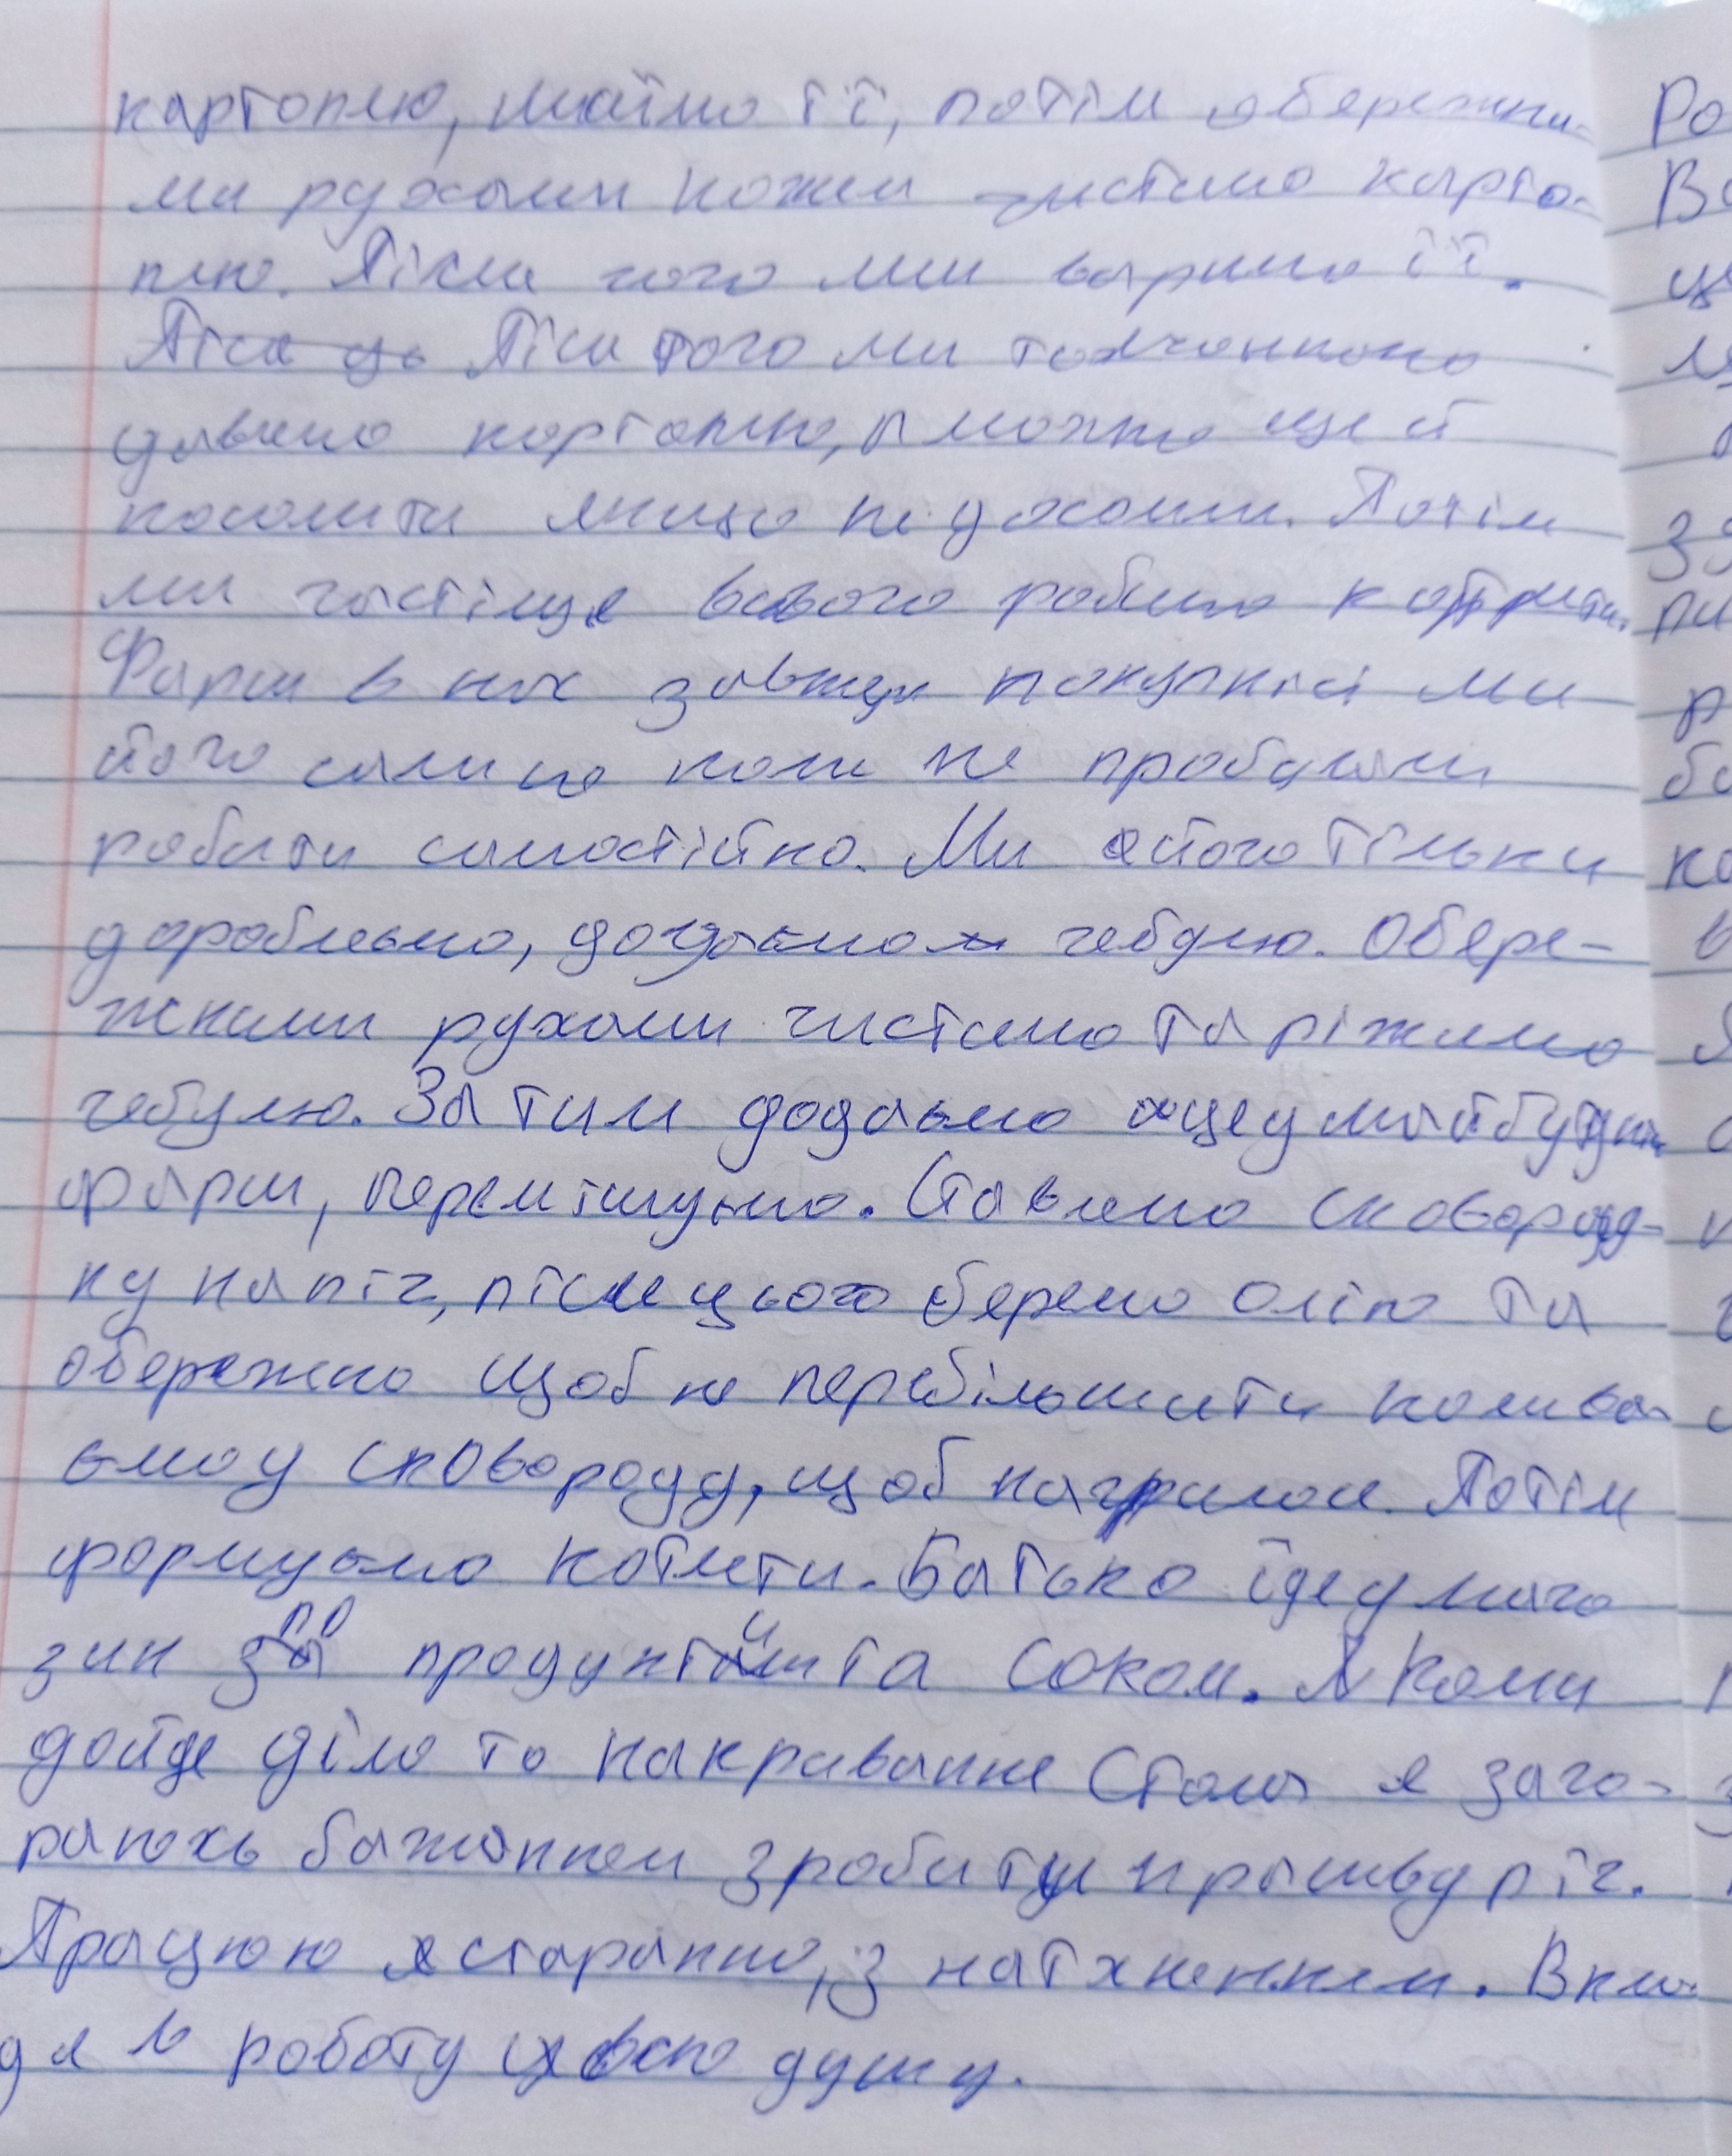 картоплю, миємо її, потім обережни-
ми рухами ножем чистимо карто-
плю. Після чого ми варимо її.
Після того ми толчонкою
давимо картоплю, можно ще й
посолити якщо не дуже солили. Потім
ми частіше всього робимо котлети.
Фарш в них завжди покупний ми
його сами ще коли не пробували
робити самостійно. Ми його тільки
доробляємо, додаємо цебулю. Обере-
жними рухами чистимо та ріжимо
цебулю. Затим додаємо яйце у майбутній
фарш, перемішуємо. Ставимо сковород-
ку на піч, після цього беремо олію та
обережно щоб не перебільшити налива-
ємо у сковороду, щоб нагрілось. Потім
формуємо котлети. Батько їде у мага-
зин по продукти та соком. А коли
дойде діло то накривання стола я заго-
раюхь бажанням зробити
Працюю я старанно, з натхненням. Вкла-
дя в роботу всю душу.
Ро